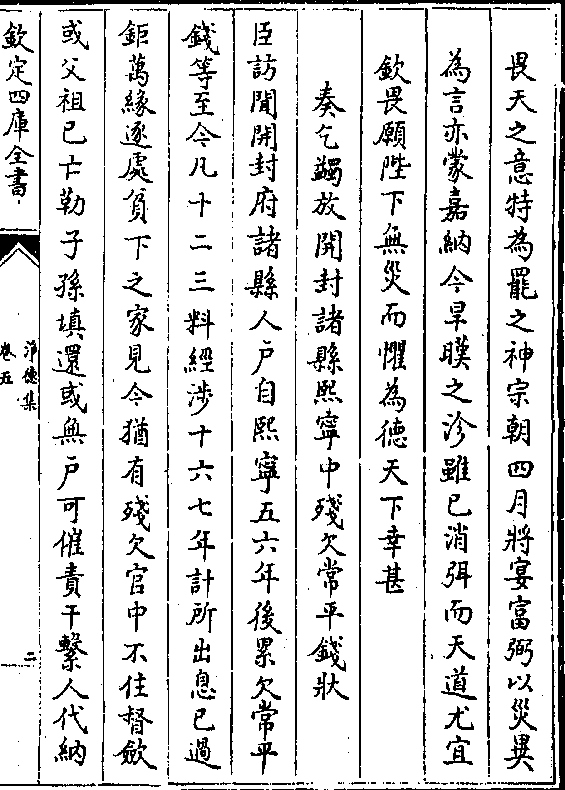 畏天之意特為罷之神宗朝四月將宴富弼以災異
為言亦蒙嘉納今旱暵之沴雖已消弭而天道尤宜
欽畏願陛下無災而懼為徳天下幸甚
奏乞蠲放開封諸縣熙寧中殘欠常平錢狀
臣訪聞開封府諸縣人户自熙寧五六年後累欠常平
錢等至今凡十二三料經涉十六七年計所出息已過
鉅萬緣逐處負下之家見今猶有殘欠官中不住督斂
或父祖已亡勒子孫填還或無户可催責干繫人代納
欽定四庫全書
浄徳集
卷五
二